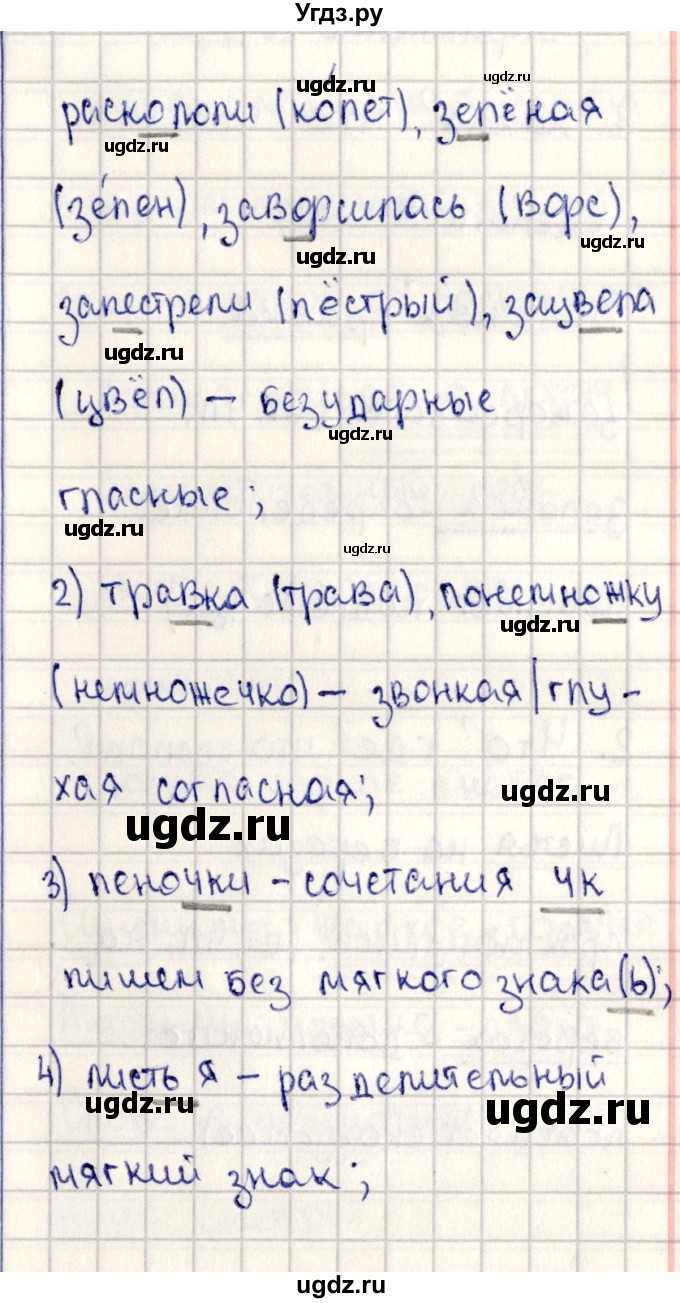 Угдз.ру
ugdz.ru ugdz.ru
раскололи (ко́лет), зелёная
ugdz.ru ugdz.ru
(зе́лен), заворсилась (ворс),
ugdz.ru ugdz.ru
запестрели (пёстрый), зацвела
ugdz.ru ugdz.ru
(цвёл) – безударные
ugdz.ru
гласные;
ugdz.ru ugdz.ru
2) травка (трава), понемножку
ugdz.ru ugdz.ru
(немножечко) – звонкая/глу-
хая согласная;
ugdz.ru
ugdz.ru
3) пеночки – сочетания чк
пишем без мягкого знака (ь);
4) листья – разделительный
ugdz.ru ugdz.ru
мягкий знак;
ugdz.ru